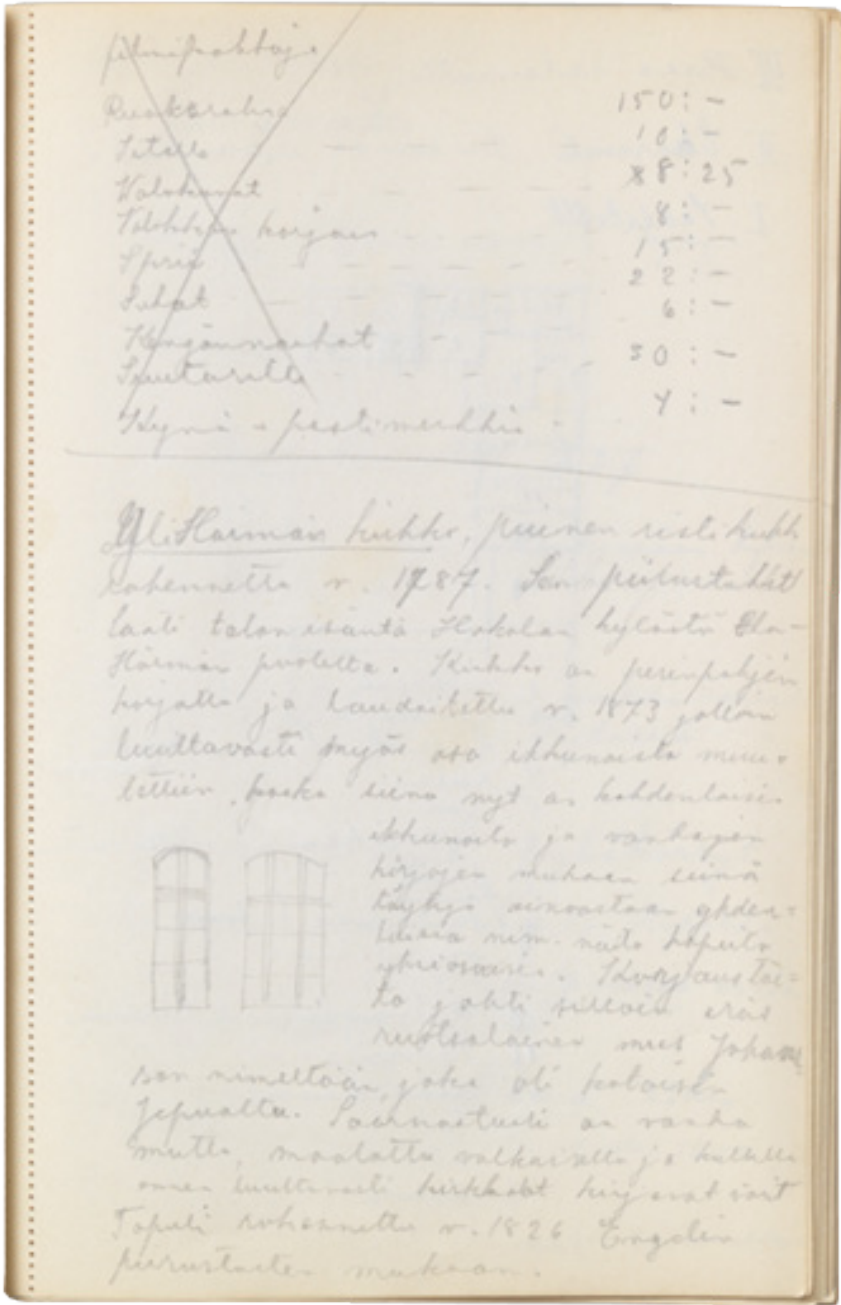 Ruokaraha 150:-
10:-
Valokuvat - - - 88:25
korjaus - - 8:-
Sprii - - - 15:-
- - - 22:-
6:-
Suutarille - - - 50:-
Kynä - postimerkkiä - 4:-
YliHärmän kirkko, puinen ristikirkk
rakennettu v. 1787. Sen piirustukset
laati talon isäntä Hakolan kylästä Ala-
Härmän puolelta. Kirkko on perinpohjin
korjattu ja laudoitettu v. 1873 jolloin
luultavasti myös osa ikkunoista muu-
tettiin, koska siinä nyt on kahdenlaisia
ikkunoita ja vanhojen
kirjojen mukaan siinä
ainoastaan yhden-
laisia nim. näitä kapeita
yksiosaisia. Korjaustöi-
tä johti silloin eräs
ruotsalainen mies Johans
son nimeltään, joka oli kotoisin
Jepualta. Saarnastuoli on vanha
mutta maalattu valkaisella ja kullalla
ennen luultavasti kirkkaat kirjavat värit
Tapuli rakennettu v. 1826 Engelin
piirustusten mukaan.